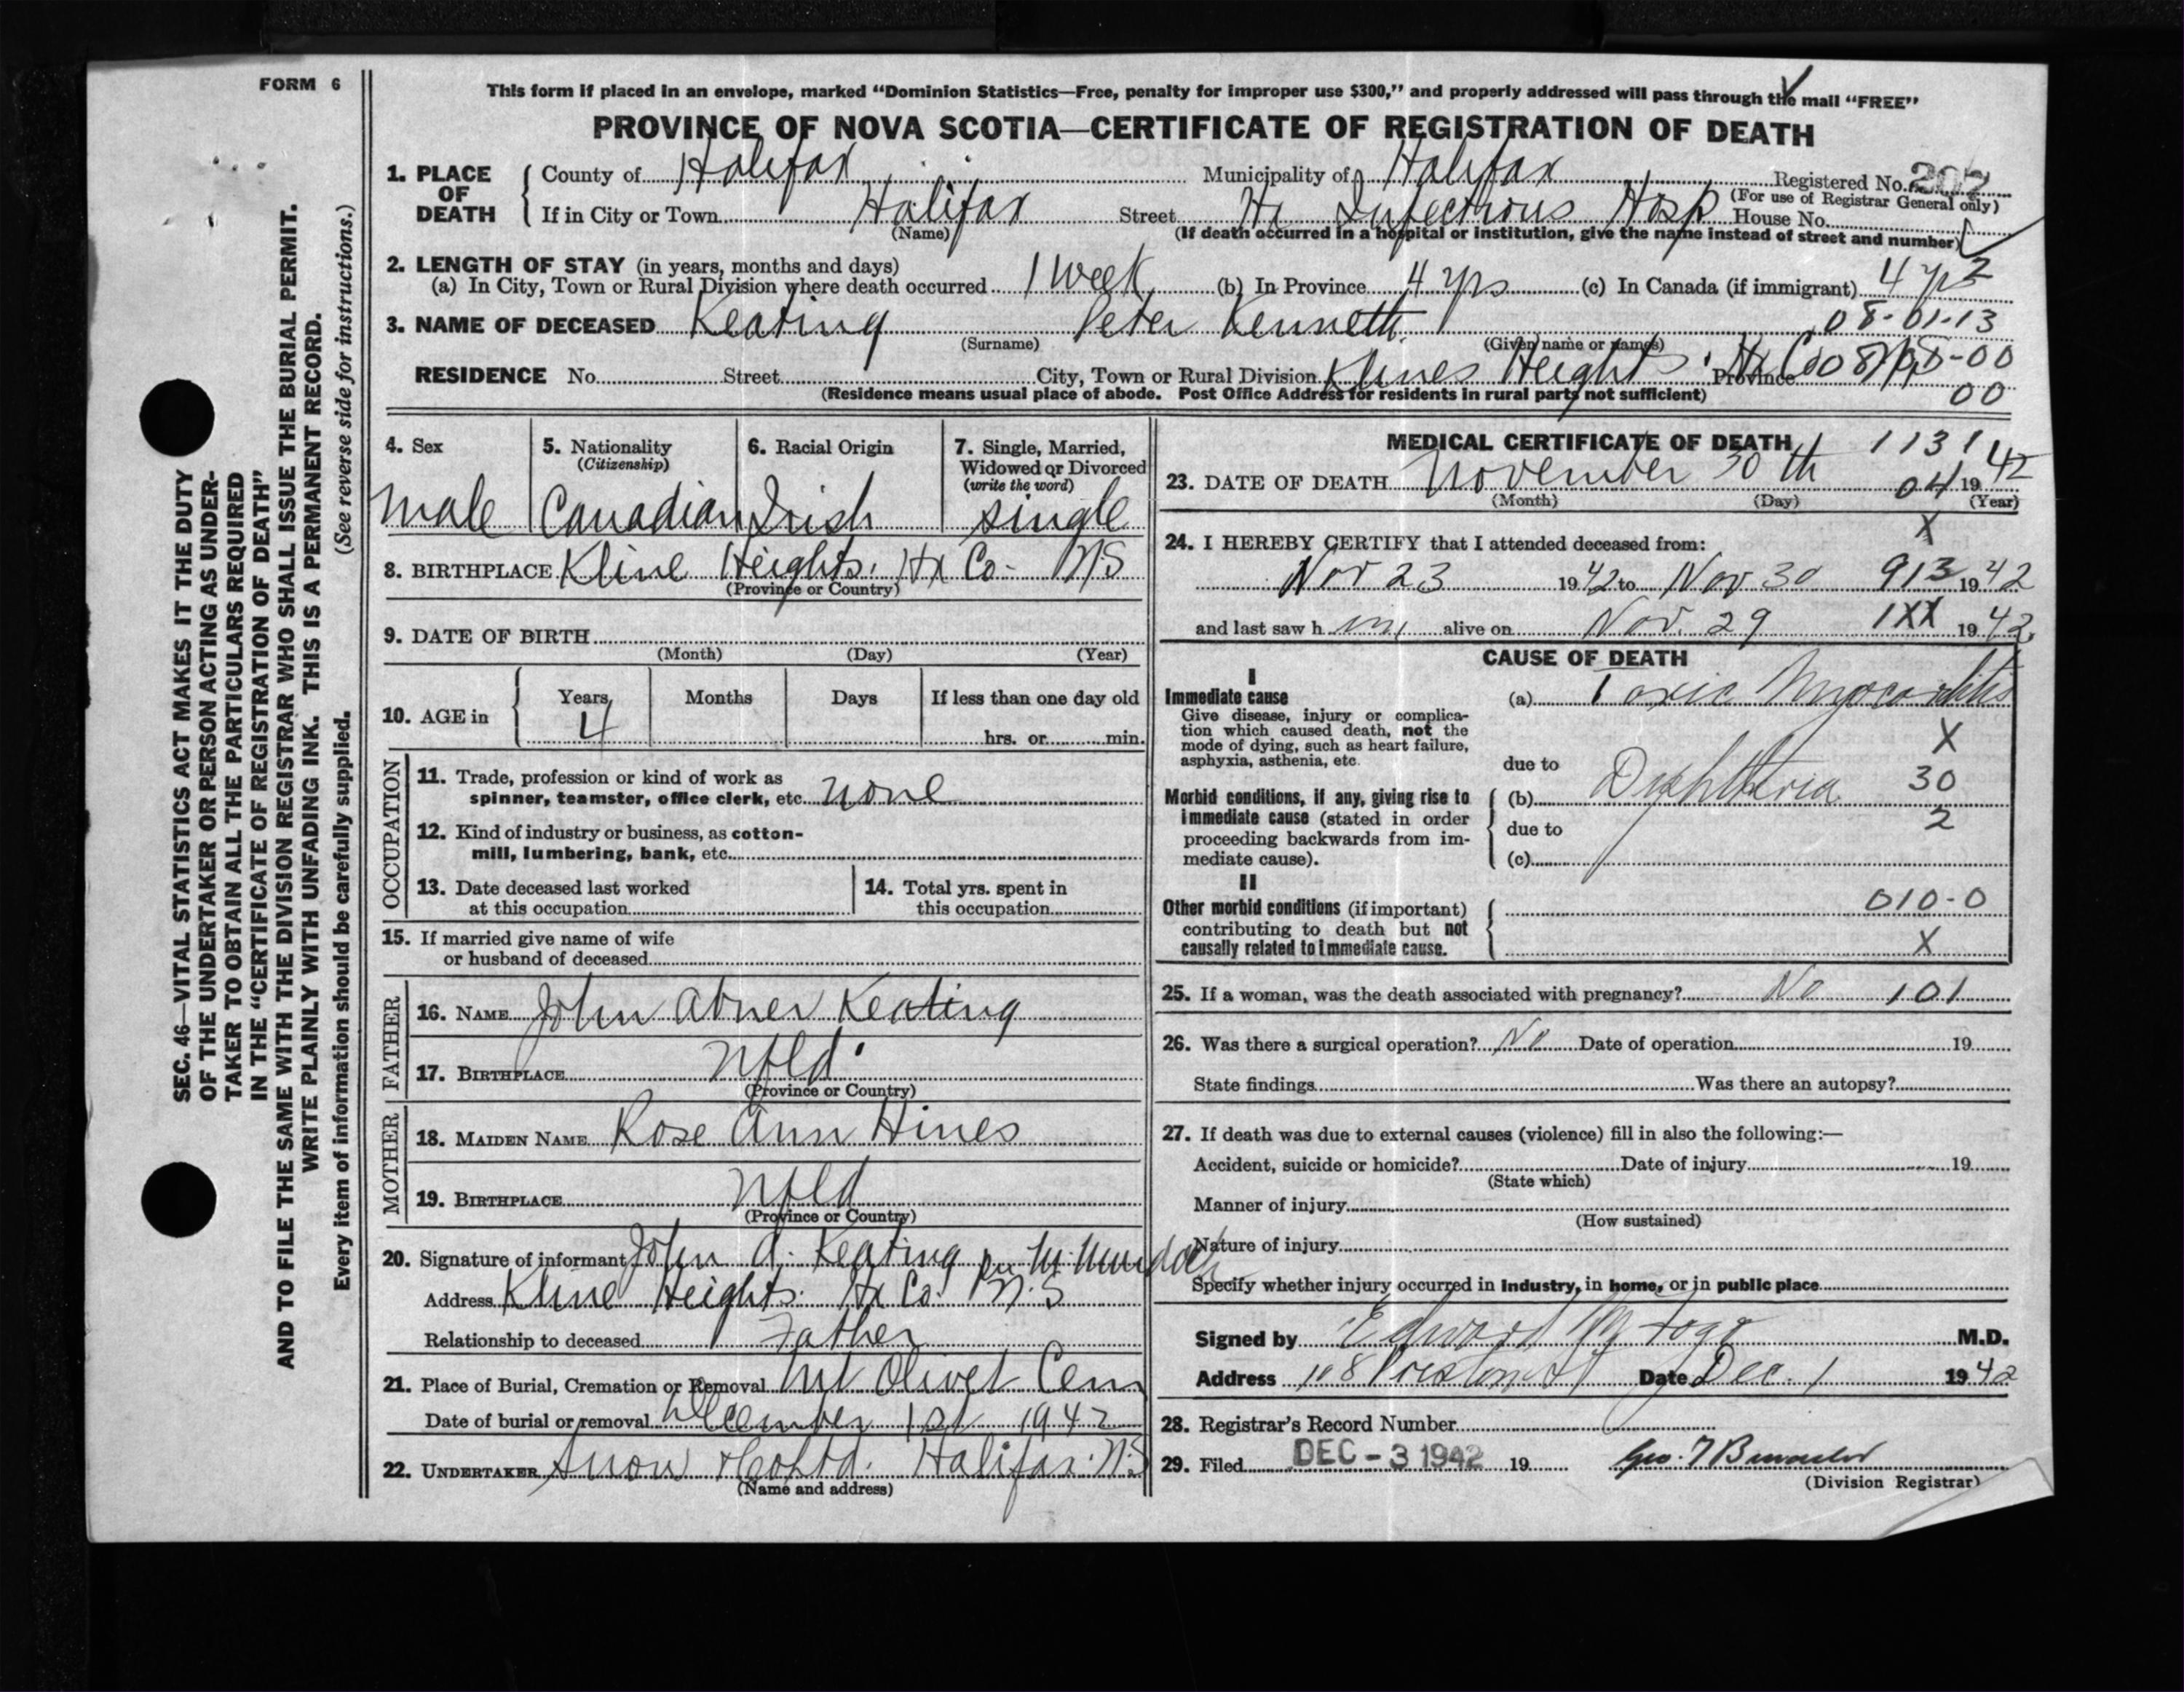 FORM 6
This form if placed in an envelope, marked “Dominion Statistics—Free, penalty for improper use $300,” and properly addressed will pass through the mail “FREE”
PROVINCE OF NOVA SCOTIA—CERTIFICATE OF REGISTRATION OF DEATH
SEC. 46—VITAL STATISTICS ACT MAKES IT THE DUTY
OF THE UNDERTAKER OR PERSON ACTING AS UNDER-
TAKER TO OBTAIN ALL THE PARTICULARS REQUIRED
IN THE “CERTIFICATE OF REGISTRATION OF DEATH”
AND TO FILE THE SAME WITH THE DIVISION REGISTRAR WHO SHALL ISSUE THE BURIAL PERMIT.
WRITE PLAINLY WITH UNFADING INK. THIS IS A PERMANENT RECORD.
Every item of information should be carefully supplied. (See reverse side for instructions.)
1. PLACE OF DEATH
County of Halifax Municipality of Halifax Registered No. 207
(For use of Registrar General only)
If in City or Town Halifax Street Hx Infectious Hosp House No.
(Name) (If death occurred in a hospital or institution, give the name instead of street and number)
2. LENGTH OF STAY (in years, months and days)
(a) In City, Town or Rural Division where death occurred 1 week (b) In Province 4 yrs (c) In Canada (if immigrant) 4 yrs 2
3. NAME OF DECEASED Keating Peter Kenneth 08-01-13
(Surname) (Given name or names)
RESIDENCE No. Street City, Town or Rural Division Klines Heights Hx Co Province
(Residence means usual place of abode. Post Office Address for residents in rural parts not sufficient) 00
4. Sex male
5. Nationality (Citizenship) Canadian
6. Racial Origin Irish
7. Single, Married, Widowed or Divorced (write the word) single
8. BIRTHPLACE Kline Heights. Hx Co- N.S
(Province or Country)
9. DATE OF BIRTH
(Month) (Day) (Year)
10. AGE in Years 4 Months Days If less than one day old
hrs. or min.
OCCUPATION
11. Trade, profession or kind of work as
spinner, teamster, office clerk, etc. none
12. Kind of industry or business, as cotton-
mill, lumbering, bank, etc.
13. Date deceased last worked
at this occupation
14. Total yrs. spent in
this occupation
15. If married give name of wife
or husband of deceased
FATHER
16. NAME John Abner Keating
17. BIRTHPLACE Nfld.
(Province or Country)
MOTHER
18. MAIDEN NAME Rose Ann Hines
19. BIRTHPLACE Nfld
(Province or Country)
20. Signature of informant John A. Keating per M. Murdoch
Address Kline Heights. Hx Co. N.S
Relationship to deceased Father
21. Place of Burial, Cremation or Removal Mt Olivet Cem
Date of burial or removal December 1st 1942
22. UNDERTAKER Snow & Co Ltd. Halifax. N.S
(Name and address)
MEDICAL CERTIFICATE OF DEATH 1131
23. DATE OF DEATH November 30th 04 1942
(Month) (Day) (Year)
X
24. I HEREBY CERTIFY that I attended deceased from:
Nov 23 1942 to Nov 30 913 1942
and last saw him alive on Nov. 29 1XX 1942
CAUSE OF DEATH
I
Immediate cause
Give disease, injury or complica-
tion which caused death, not the
mode of dying, such as heart failure,
asphyxia, asthenia, etc.
(a) Toxic Myocarditis
X
due to
Morbid conditions, if any, giving rise to
immediate cause (stated in order
proceeding backwards from im-
mediate cause).
(b) Diphtheria 30
due to 2
(c)
II
Other morbid conditions (if important)
contributing to death but not
causally related to immediate cause.
010-0
X
25. If a woman, was the death associated with pregnancy? No 101
26. Was there a surgical operation? No Date of operation 19
State findings Was there an autopsy?
27. If death was due to external causes (violence) fill in also the following:—
Accident, suicide or homicide? Date of injury 19
(State which)
Manner of injury
(How sustained)
Nature of injury
Specify whether injury occurred in industry, in home, or in public place
Signed by Edward M Fogo M.D.
Address 108 Preston St Date Dec. 1 1942
28. Registrar's Record Number
29. Filed DEC - 3 1942 19
(Division Registrar)